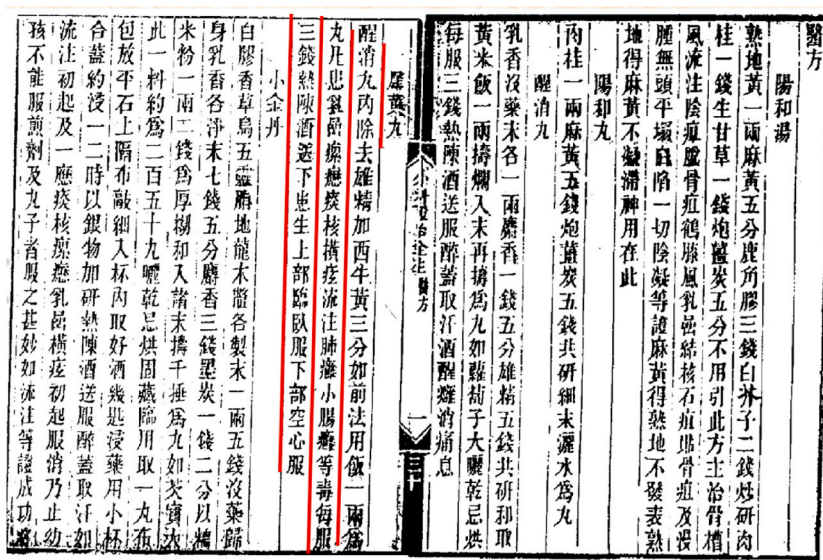 醫方
陽和湯
熟地黃一兩麻黃五分鹿角膠三錢白芥子二錢炒研肉
桂一錢生甘草一錢炮薑炭五分不用引此方主治骨槽
風流注陰疽脫骨疽鶴膝風乳嵒結核石疽貼骨疽及漫
腫無頭平塌白陷一切陰凝等證麻黃得熟地不發表熟
地得麻黃不凝滯神用在此
陽和丸
肉桂一兩麻黃五錢炮薑炭五錢共研細末灑水為丸
醒消丸
乳香沒藥末各一兩麝香一錢五分雄精五錢共研和取
黃米飯一兩擣爛入末再擣為丸如蘿蔔子大曬乾忌烘
每服三錢熱陳酒送服醉蓋取汗酒醒癰消痛息
外科證治全生 醫方 一
犀黃丸
醒消丸內除去雄精加西牛黃三分如前法用飯一兩為
丸凡患乳嵒瘰癧痰核橫痃流注肺癰小腸癰等毒每服
三錢熱陳酒送下患生上部臨臥服下部空心服
小金丹
白膠香草烏五靈脂地龍木鼈各製末一兩五錢沒藥歸
身乳香各淨末七錢五分麝香三錢墨炭一錢二分以糯
米粉一兩二錢為厚糊和入諸末擣千捶為丸如芡實大
此一料約為二百五十丸曬乾忌烘固藏臨用取一丸布
包放平石上隔布敲細入杯內取好酒幾匙浸藥用小杯
合蓋約浸一二時以銀物加研熱陳酒送服醉蓋取汗如
流注初起及一應痰核瘰癧乳嵒橫痃初起服消乃止幼
孩不能服煎劑及丸子者服之甚妙如流注等證成功將